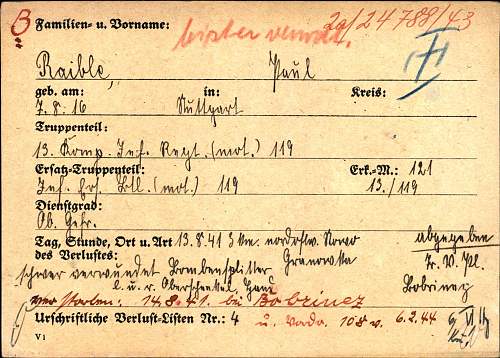 B Familien- u. Vorname: 2a/24 788/43
bisher verwdt.
Raible, Paul
geb. am: in: Kreis:
7. 8. 16 Stuttgart
Truppenteil:
13. Komp. Inf. Regt. (mot.) 119
Ersatz-Truppenteil: Erk.-M.: 121
Inf. Ers. Btl. (mot.) 119 13./119
Dienstgrad:
Ob. Gefr.
Tag, Stunde, Ort u. Art 13. 8. 41 3 km. nordostw. Nowo abgegeben
des Verlustes: Granowska Tr. V. Pl.
schwer verwundet Bombensplitter Bobrinez
l. u. r. Oberschenkel, Hand
verstorben: 14. 8. 41. bei Bobrinez
Urschriftliche Verlust-Listen Nr.: 4 u. 108 v. 6.2.44
V 1